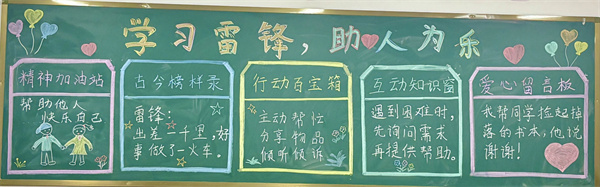 学习雷锋，助人为乐
精神加油站
帮助他人
快乐自己
古今榜样录
雷锋：
出差一千里，好
事做了一火车。
行动百宝箱
主动帮忙
分享物品
倾听倾诉
互动知识窗
遇到困难时，
先询问需求
再提供帮助。
爱心留言板
我帮同学捡起掉
落的书本，他说
谢谢！